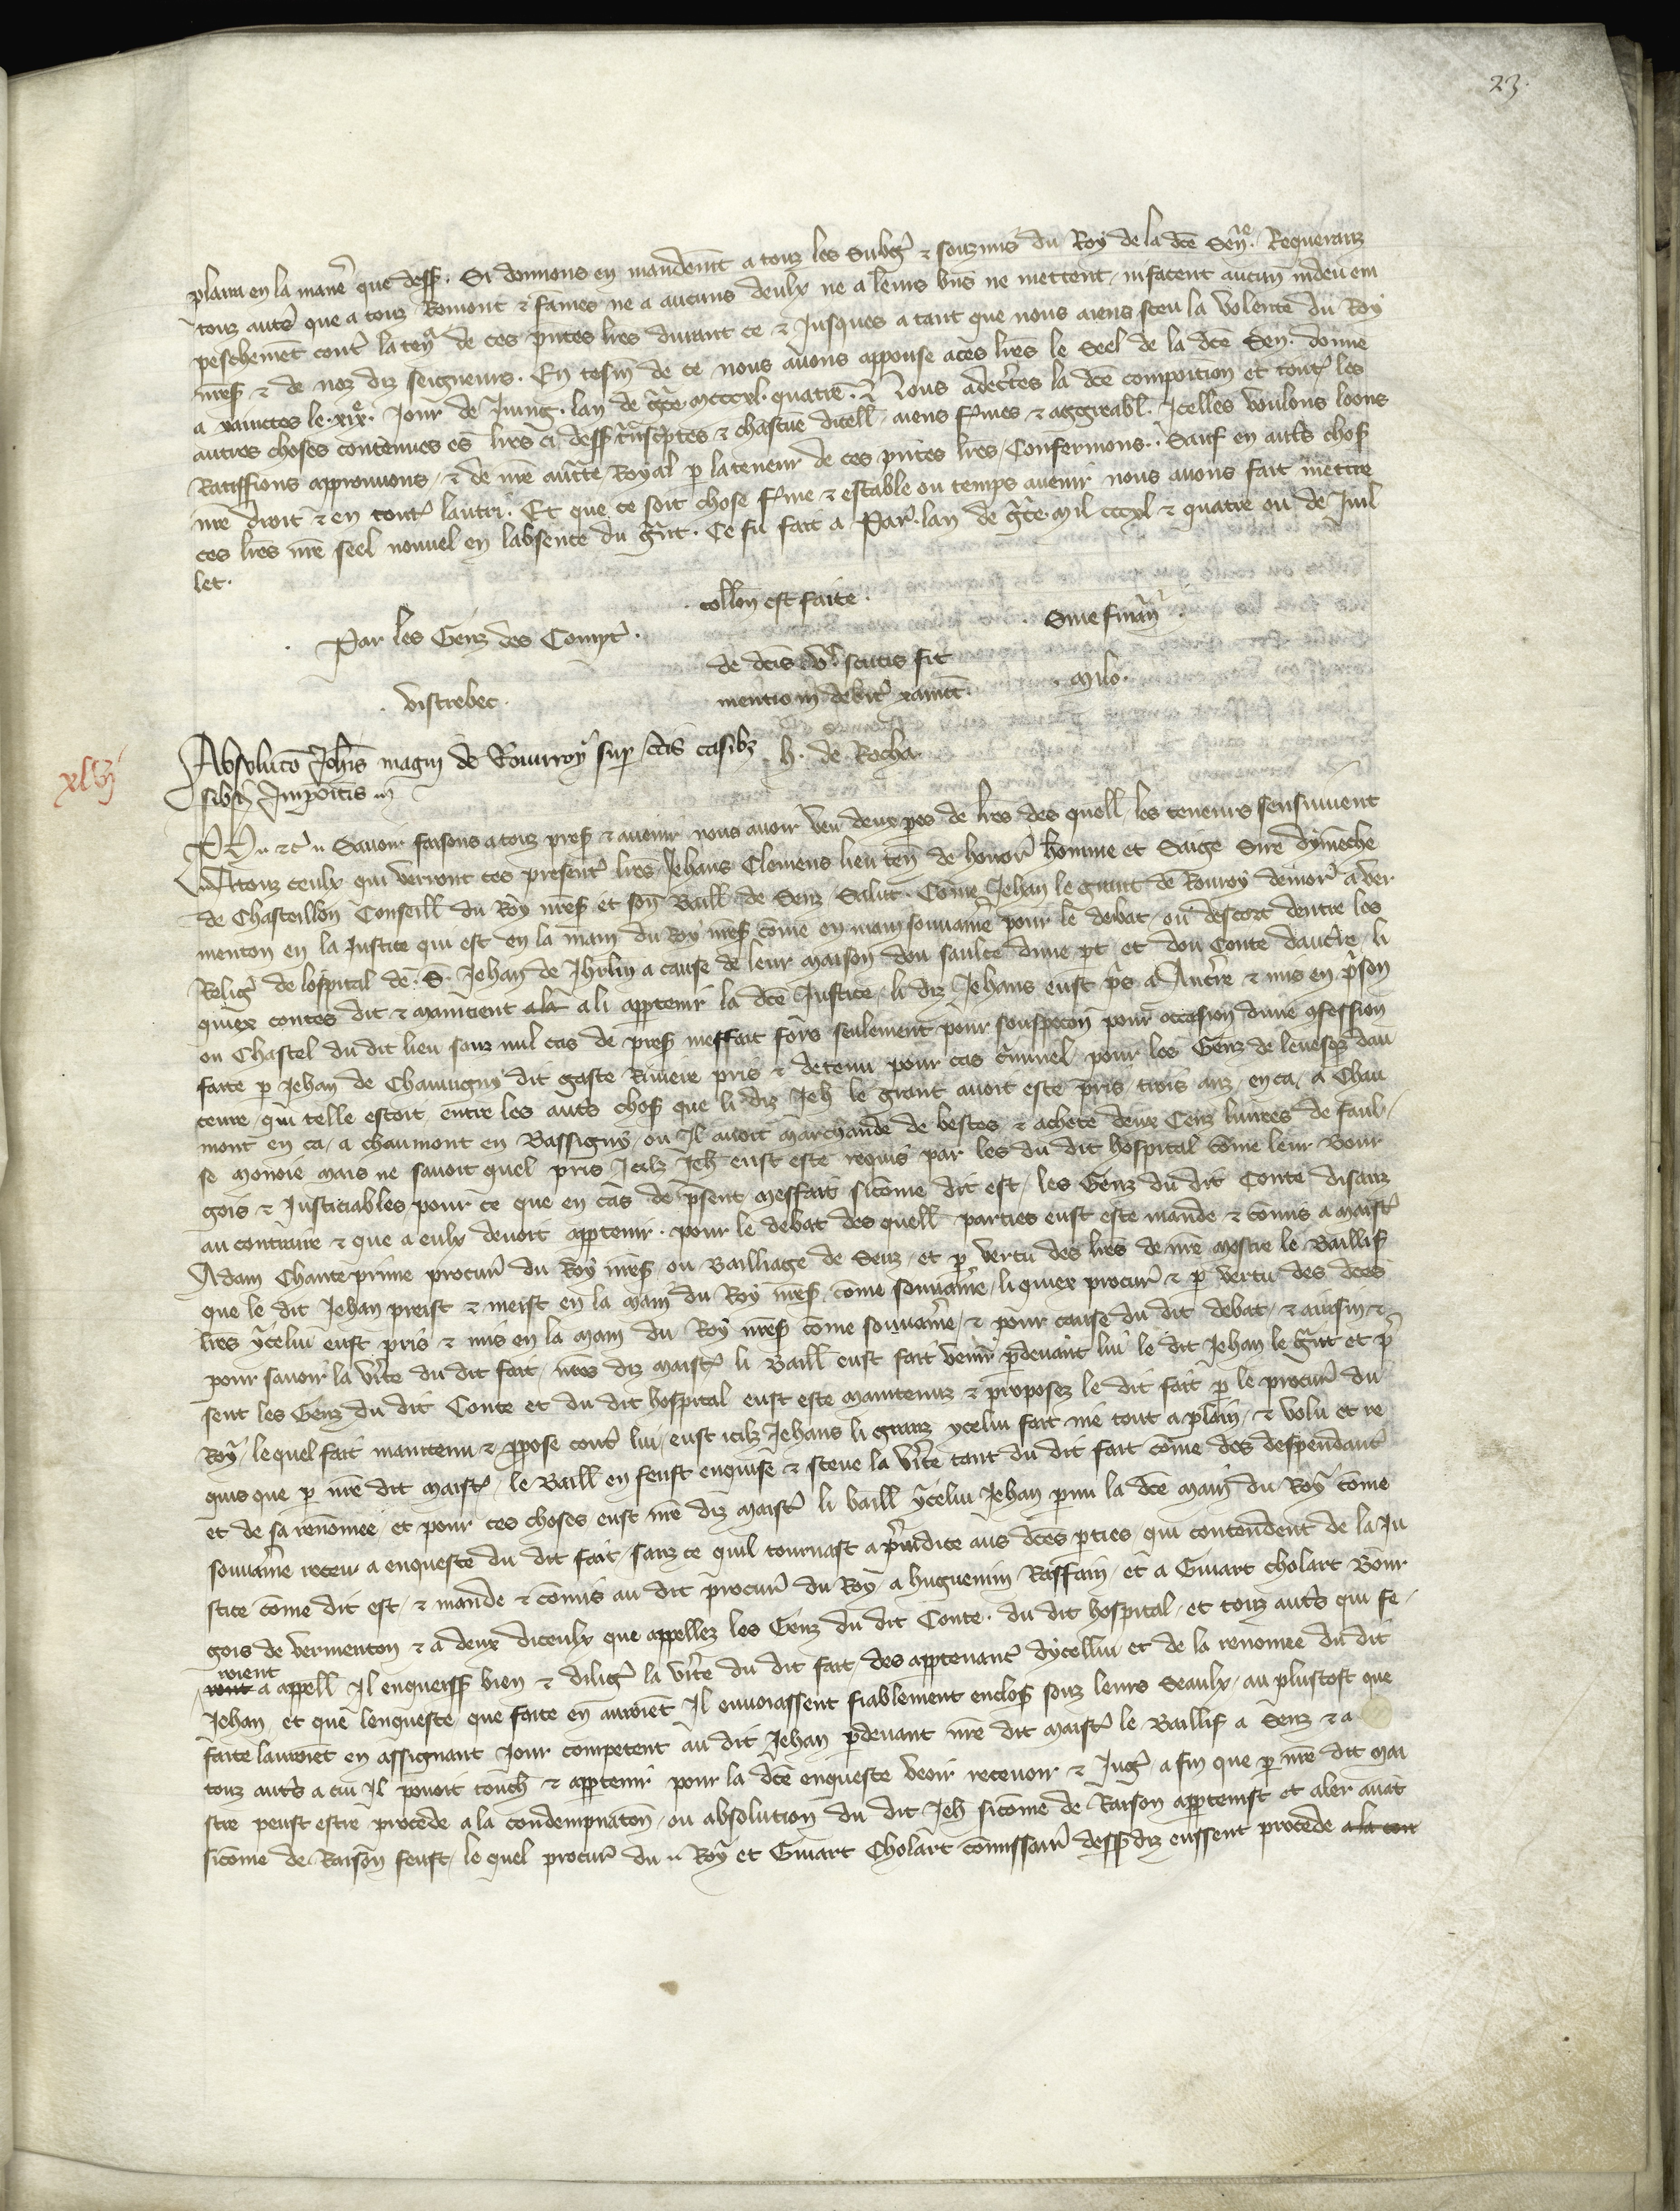 23.
plaira en la manẽ que dess. Si donnons en mandemẽt a touz les Subgẽ & souzmis du Roy de la dcẽ Senẽ. Requeranz
touz autẽ que a touz Romont & fames ne a aucuns deulx ne a leurs biẽs ne mettent, ni facent aucun indeu em
peschemẽt contẽ la tenẽ de ces pñtes lrẽs durant ce & Jusques a tant que nous aiens sceu la volente du Roy
nrẽs & de noz diz seigneurs. En tesm̃ de ce nous avons appouse a ces lrẽs le Seel de la dcẽ Sen. donne
a xainctes le .xixẽ. Jour de Juing. lan de grẽce mcccxl. quatrẽ. & Nous adecrẽtes la dcẽ composition et toutẽ les
autres choses contenues es lrẽs ci dess trãnscriptes & chascũe dicell aiens fẽmes & aggreabl. Icelles voulons loons
Ratiffions approuvons & de nrẽ autẽte Royal p la teneur de ces pñtes lrẽs Confermons. Sauf en autẽs chos
nrẽ droit & en toutẽ lautri. Et que ce soit chose fẽme & estable ou temps avenir nous avons fait mettre
ces lrẽs nrẽ seel nouvel en labsence du grãnt. Ce fu fait a Parẽ. lan de grãce mil cccxl & quatre ou de Juil
let.
collõn est faite.
Par les Genz des Comptẽ.
Sine finanẽ
de dcĩs scutis fit
mentio in debitẽ xanctẽ.
Milo.
vistrebec.
xlvij
Absolutõ Johĩs magni de Rouvroy sup cĩs casibz
sibi Impositis
h. de Rocha
Ph & c̃. Savoir faisons a touz pres & avenir nous avoir veu deux pẽs de lrẽs des quell les teneurs sensuivent
A touz ceulx qui verront ces presentẽ lrẽs Jehans Clemens lieu ten̄ de honorẽ homme et Saige Sire dymenche
de Chasteillon Conseill du Roy nrẽs et son Baill de Senz Salut. Come Jehan le grant de Rouroy demorẽ a Ver
menton en la Justice qui est en la main du Roy nrẽs come en main souvainẽ pour le debat ou descort dentre les
Religẽ de lospital de S. Jehan de Jhrlm a cause de leur maison dou saulce dune pt, et dou Conte daucẽre, li
quiex contes dit & maintient ala a li appartenir la dcẽ Justice, li diz Jehans eust pris a Aucẽre & mis en prẽson
ou Chastel du dit lieu sanz nul cas de pres meffait fors seulement pour souspecon pour occasion dune confession
faite p Jehan de Chaumgny dit gaste Riviere pris & detenu pour cas crimnel pour les Genz de levesqẽ dau
cerre, qui telle estoit, entre les autẽs chos que li diz Jeh le grant avoit este pris trois anz en ca, a Chau
mont en ca, a chaumont en Bassigny, ou Il avoit marchande de bestes & achete deux Cenz livrees de faul
se monoie mais ne savoit quel pris. Icilz Jeh eust este requis par les du dit hospital come leur bour
gois & Justiciables pour ce que en cas de prẽsent meffait sicome dit est, les Genz du dit Conte disanz
au contraire & que a eulx devoit apptenir. pour le debat des quell parties eust este mande & comis a maistẽ
Adam Chante prime procurẽ du Roy nrẽs ou Bailliage de Senz, et p vertu des lrẽs de nrẽ mestre le Baillif
que le dit Jehan preist & meist en la main du Roy nrẽs, come souvainẽ, li quiex procurẽ & p vertu des dcẽs
lrẽs ycelui eust pris & mis en la main du Roy nrẽs come souvainẽ, & pour cause du dit debat, & aussin &
pour savoir la vẽrte du dit fait, nrẽs diz maistẽ li Baill eust fait venir pdevant lui le dit Jehan le grãnt et prẽ
sent les Genz du dit Conte et du dit hospital eust este maintenuz & proposez le dit fait p le procurẽ du
Roy, le quel fait maintenu & ppose contẽ lui, eust icilz Jehans li granz ycelui fait nie tout a plain, & volu et re
quis que p nrẽ dit maistẽ, le Baill en feust enquise & sceue la vẽrte tant du dit fait come des despendantẽ
et de sa renomee, et pour ces choses eust nrẽ diz maistẽ li baill ycelui Jehan pmi la dcẽ main du Roy come
souvainẽ receu a enqueste du dit fait, sanz ce quil tournast a prẽiudice aus dcẽs pties, qui contendent de la Ju
stice come dit est, & mande & comis au dit procurẽ du Roy a huguenin Raffain, et a Guiart cholart Bour
gois de vermenton & a deux diceulx que appellez les Genz du dit Conte. du dit hospital, et touz autẽs qui fe
roient
ront a appell Il enqueiss bien & diligẽ la vẽrte du dit fait, des apptenantẽ dycellui et de la renomee du dit
Jehan, et que lenqueste que faite en auroiẽt Il envoiassent fiablement enclos souz leurs Seaulx, au plustost que
faite lauroiẽt en assignant Jour competent au dit Jehan pdevant nrẽ dit maistẽ le Baillif a Senz & a
touz autẽs a cui Il povoit touch & apptenir pour la dcẽ enqueste veoir recevoir & Jugẽ, a fin que p nrẽ dit mai
stre peust estre procede a la condempnatõn, ou absolution du dit Jeh sicome de Raison apptenist et aler avãt
sicome de Raison feust, le quel procurẽ du Roy et Guiart Cholart comissairẽ dessdiz eussent procede a la con